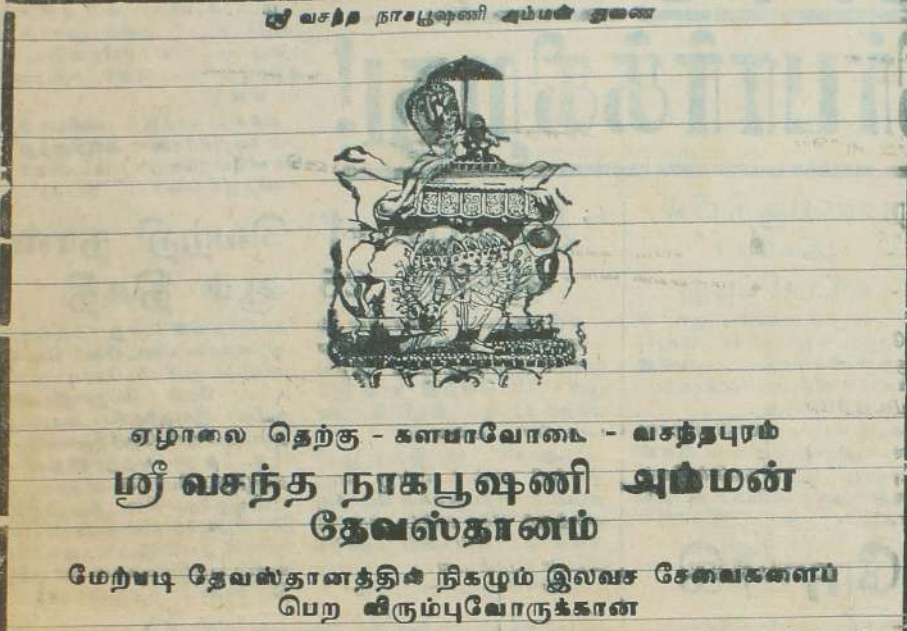 ஸ்ரீ வசந்த நாகபூஷணி அம்மன் துணை
ஏழாலை தெற்கு - களபாவோடை - வசந்தபுரம்
ஸ்ரீ வசந்த நாகபூஷணி அம்மன்
தேவஸ்தானம்
மேற்படி தேவஸ்தானத்தில் நிகழும் இலவச சேவைகளைப்
பெற விரும்புவோருக்கான்